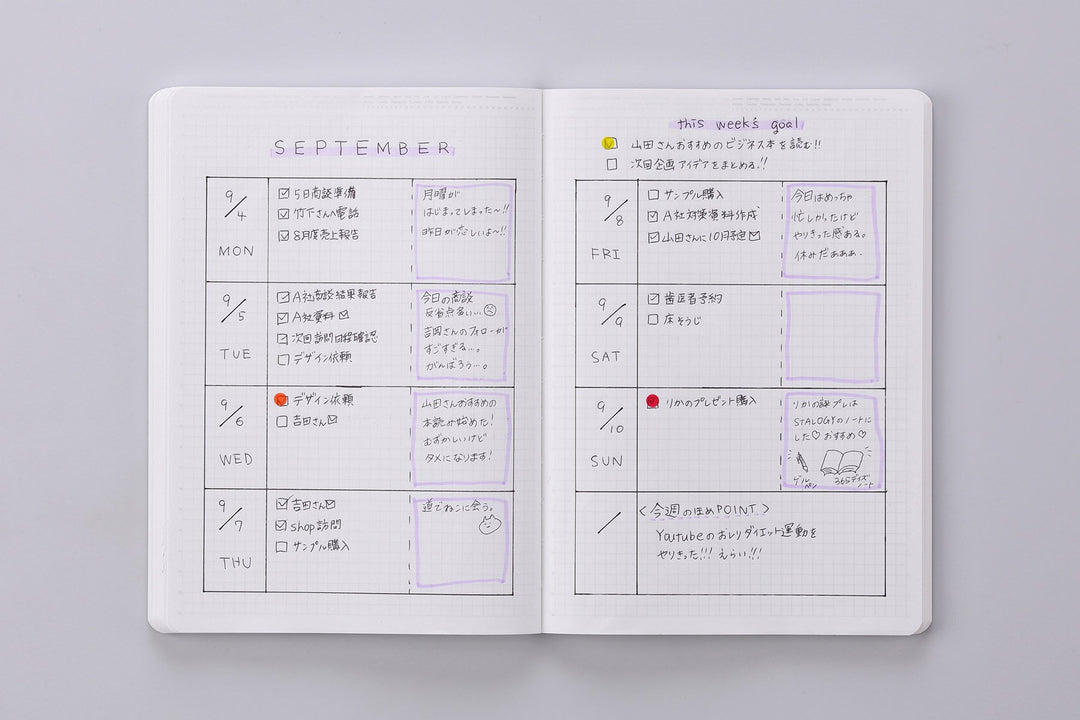 SEPTEMBER
9/4
MON
☑ 5日商談準備
☑ 竹下さんへ電話
☑ 8月度売上報告
月曜が
はじまってしまった〜!!
昨日が恋しいよ〜!!
9/5
TUE
☑ A社商談結果報告
☑ A社資料✉
☑ 次回訪問日程確認
☐ デザイン依頼
今日の商談
反省点多い…☹
吉岡さんのフォローが
すごすぎる…。
がんばろう…。
9/6
WED
☑ デザイン依頼
☐ 吉田さん✉
山田さんおすすめの
本読み始めた!
むずかしいけど
タメになります!
9/7
THU
☑ 吉田さん✉
☑ shop訪問
☐ サンプル購入
道でねこに会う。
this week's goal
☑ 山田さんおすすめのビジネス本を読む!!
☐ 次回企画アイデアをまとめる!!
9/8
FRI
☐ サンプル購入
☑ A社対策資料作成
☑ 山田さんに10月予定✉
今日はめっちゃ
忙しかったけど
やりきった感ある。
休みだぁぁぁ.
9/9
SAT
☑ 歯医者予約
☐ 床そうじ
9/10
SUN
☑ りかのプレゼント購入
りかの誕プレは
STALOGYのノートに
した♡おすすめ♡
ゲルペン
365デイズノート
/
<今週のほめPOINT>
Youtubeのおしりダイエット運動を
やりきった!!! えらい!!!